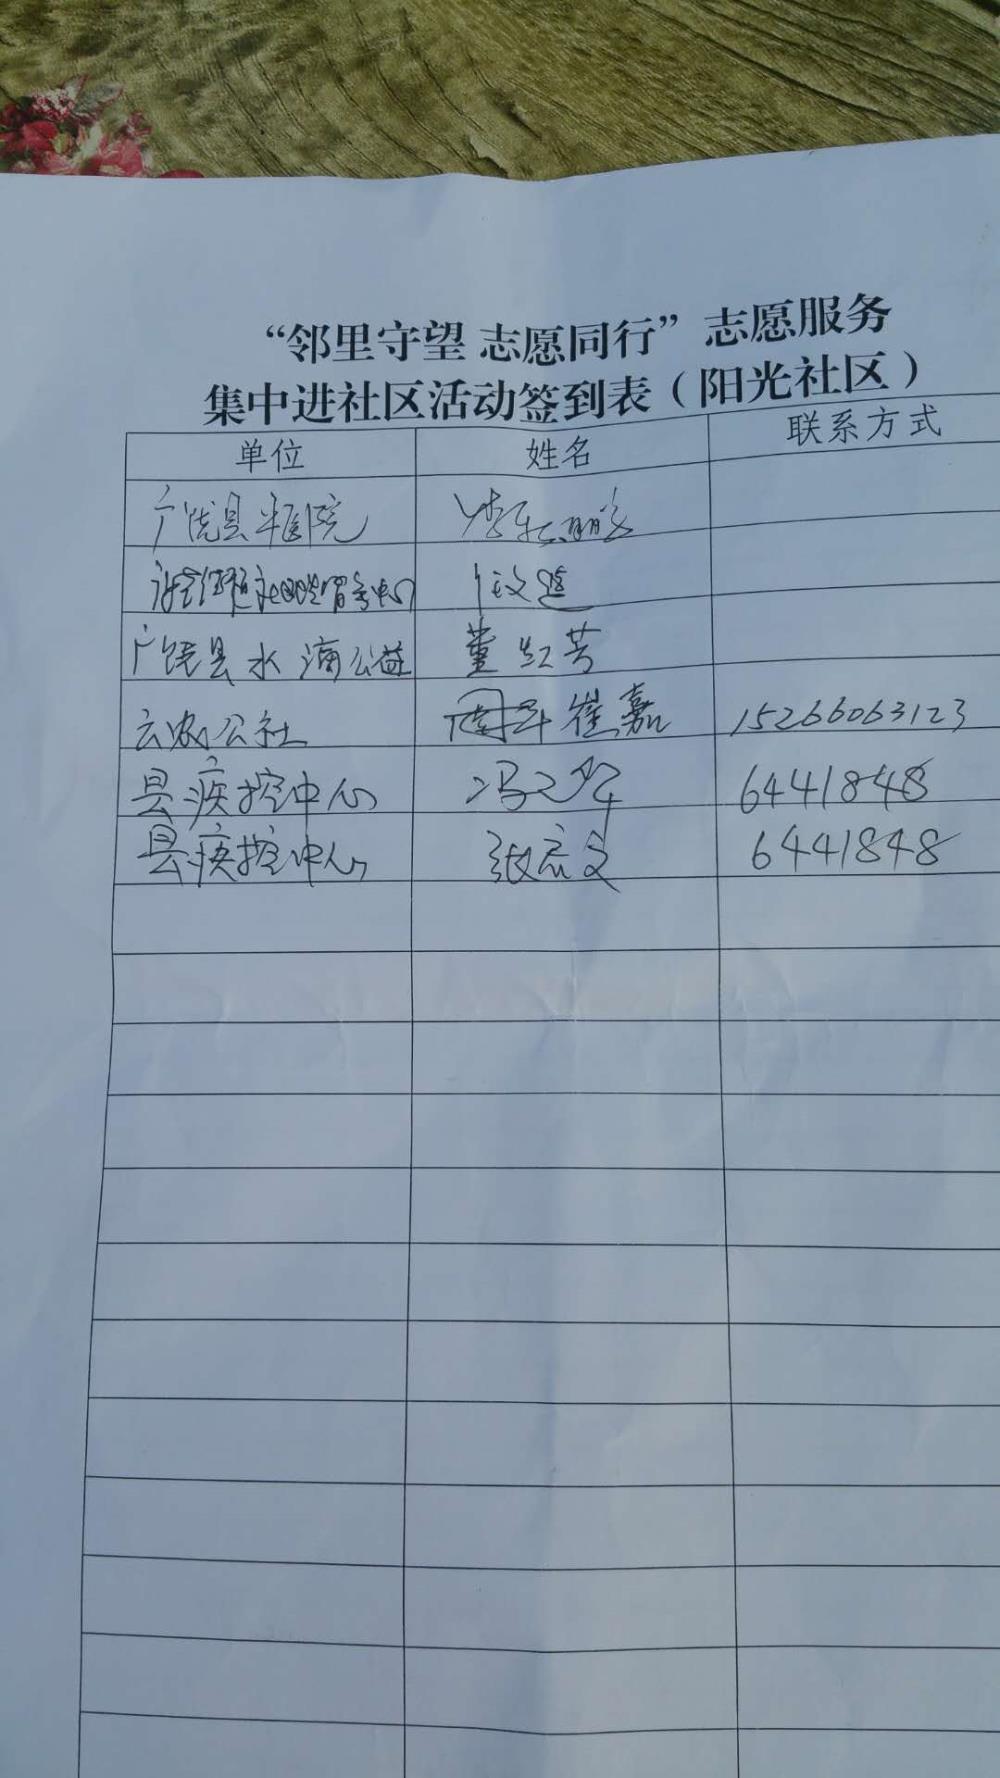 “邻里守望 志愿同行”志愿服务
集中进社区活动签到表（阳光社区）
单位 姓名 联系方式
广饶县中医院
广饶县水滴公益 董红芳
云农公社 崔嘉 15266063123
县疾控中心 冯 6441848
县疾控中心 张宏文 6441848